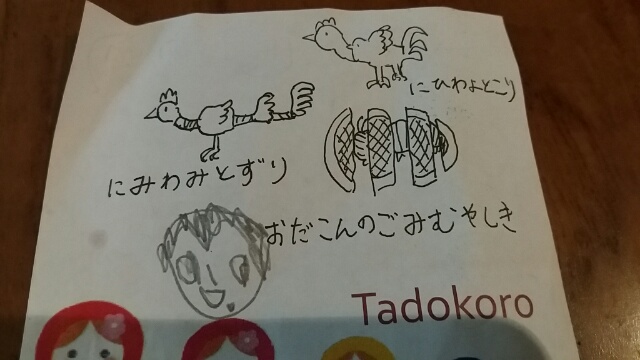 にひわよとこり
にみわみとずり
おだこんのごみむやしき
Tadokoro